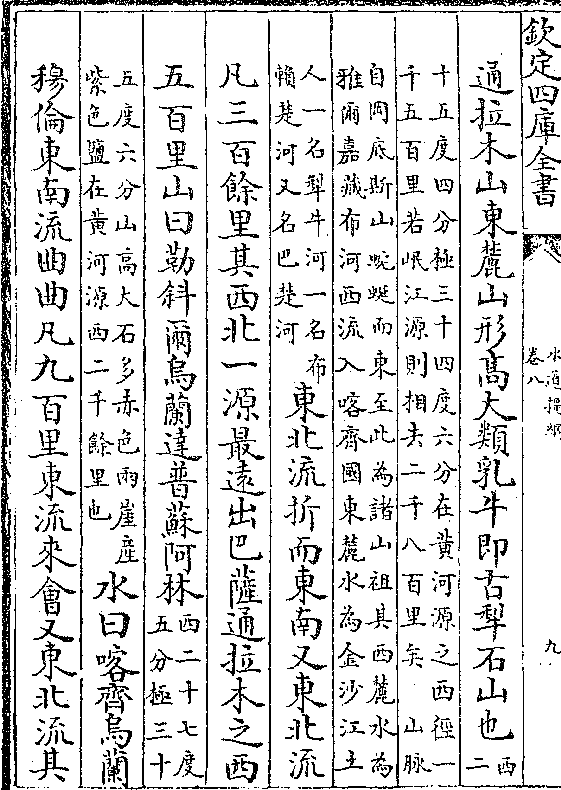 欽定四庫全書
水道提綱
卷八
九
通拉木山東麓山形髙大類乳牛即古犂石山也西二
十五度四分極三十四度六分在黄河源之西徑一
千五百里若岷江源則相去二千八百里矣　山脉
自岡底斯山蜿蜒而東至此為諸山祖其西麓水為
雅爾嘉藏布河西流入喀齊國東麓水為金沙江土
人一名犂牛河一名布
賴楚河又名巴楚河
東北流折而東南又東北流
凡三百餘里其西北一源最遠出巴薩通拉木之西
五百里山曰勒斜爾烏蘭達普蘇阿林西二十七度
五分極三十
五度六分山高大石多赤色兩崖産
紫色鹽在黄河源西二千餘里也
水曰喀齊烏蘭
穆倫東南流曲曲凡九百里東流來會又東北流其